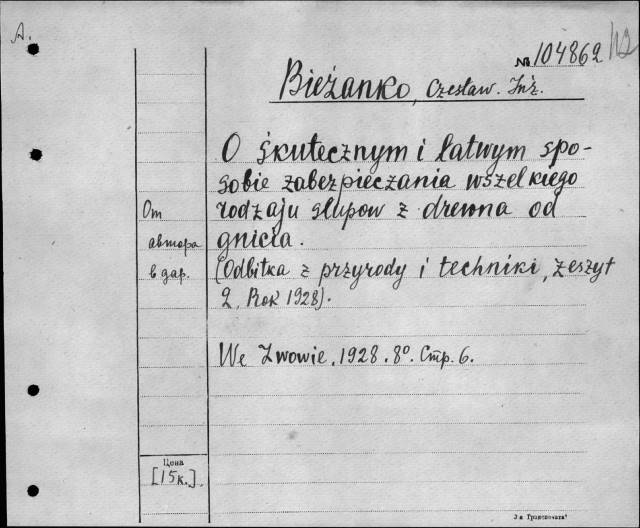 A.
№ 104862
Bieżanko, Czesław. Inż.
O skutecznym i łatwym spo-
sobie zabezpieczania wszelkiego
rodzaju słupow z drewna od
gnicia.
(Odbitka z przyrody i techniki, zeszyt
2, Rok 1928).
We Lwowie, 1928. 8°. Стр. 6.
От
автора
в дар.
Цена
[15к.]